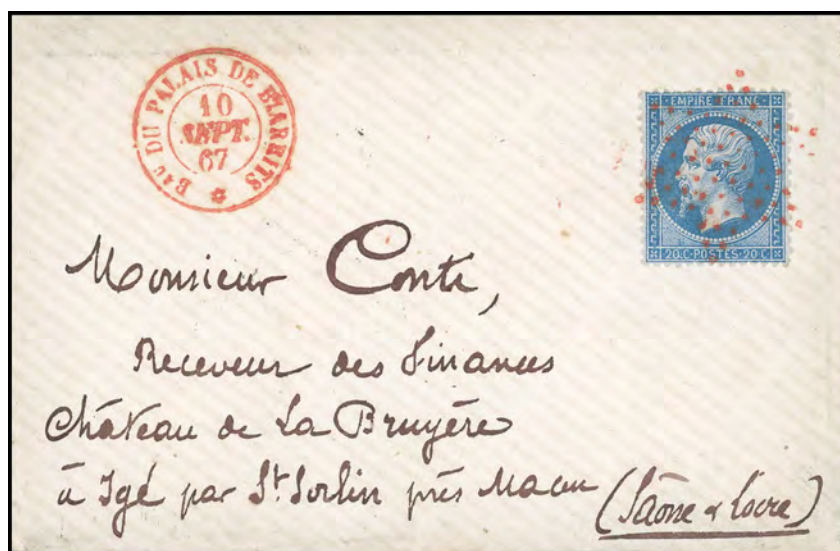 Bau DU PALAIS DE BIARRITS
10
SEPT.
67
EMPIRE FRANC.
20.C.POSTES.20C
Monsieur Conti,
Receveur des Finances
Château de La Bruyère
à Igé par St Sorlin près Macon (Saône & Loire)